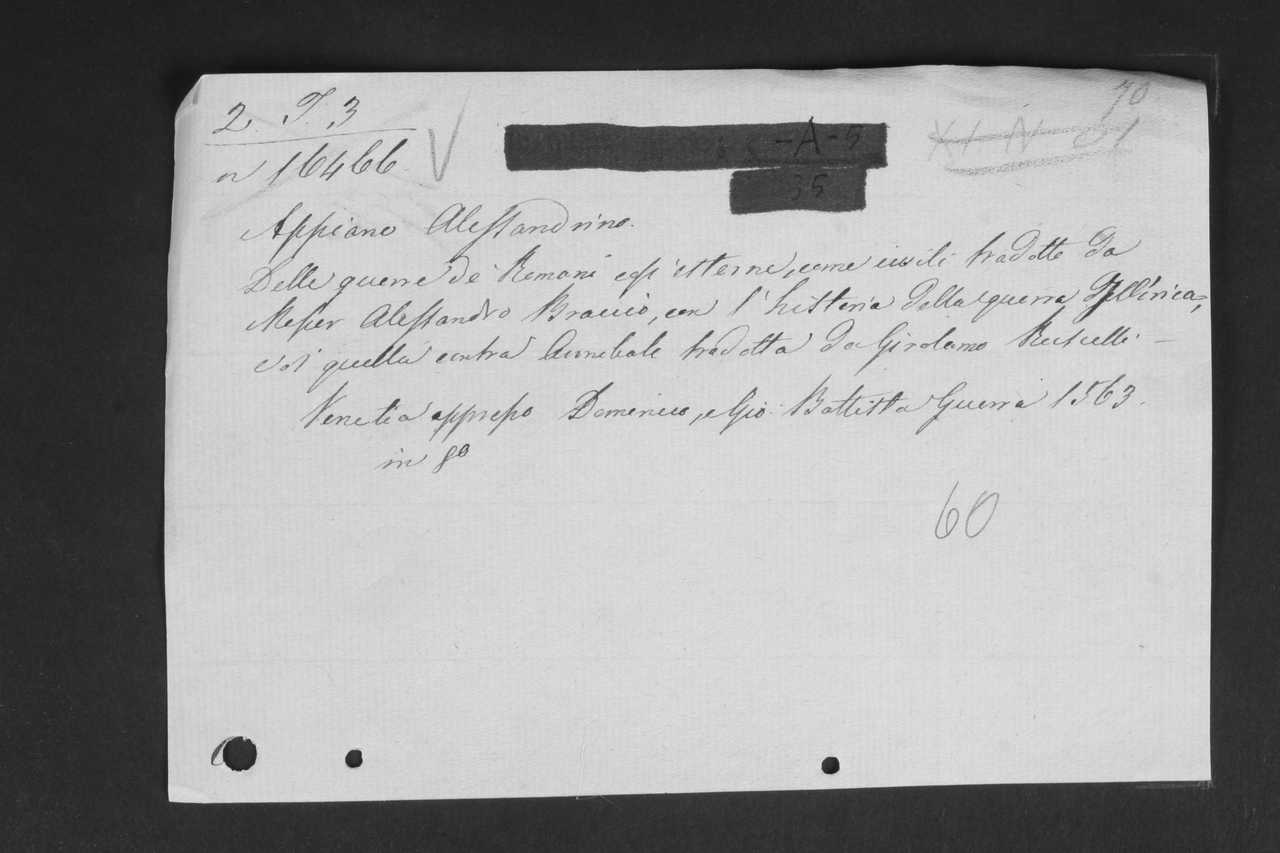 2. T. 3
70
n 16466
-A-5
35
XI N 61
Appiano Alessandrino.
Delle guerre de' Romani così esterne, come civili tradotte da
Messer Alessandro Braccio, con l'historia della guerra Illirica,
e di quella contra Annibale tradotta da Girolamo Ruscelli –
Venetia appresso Domenico, e Gio: Battista Guerra 1563.
in 8º
60